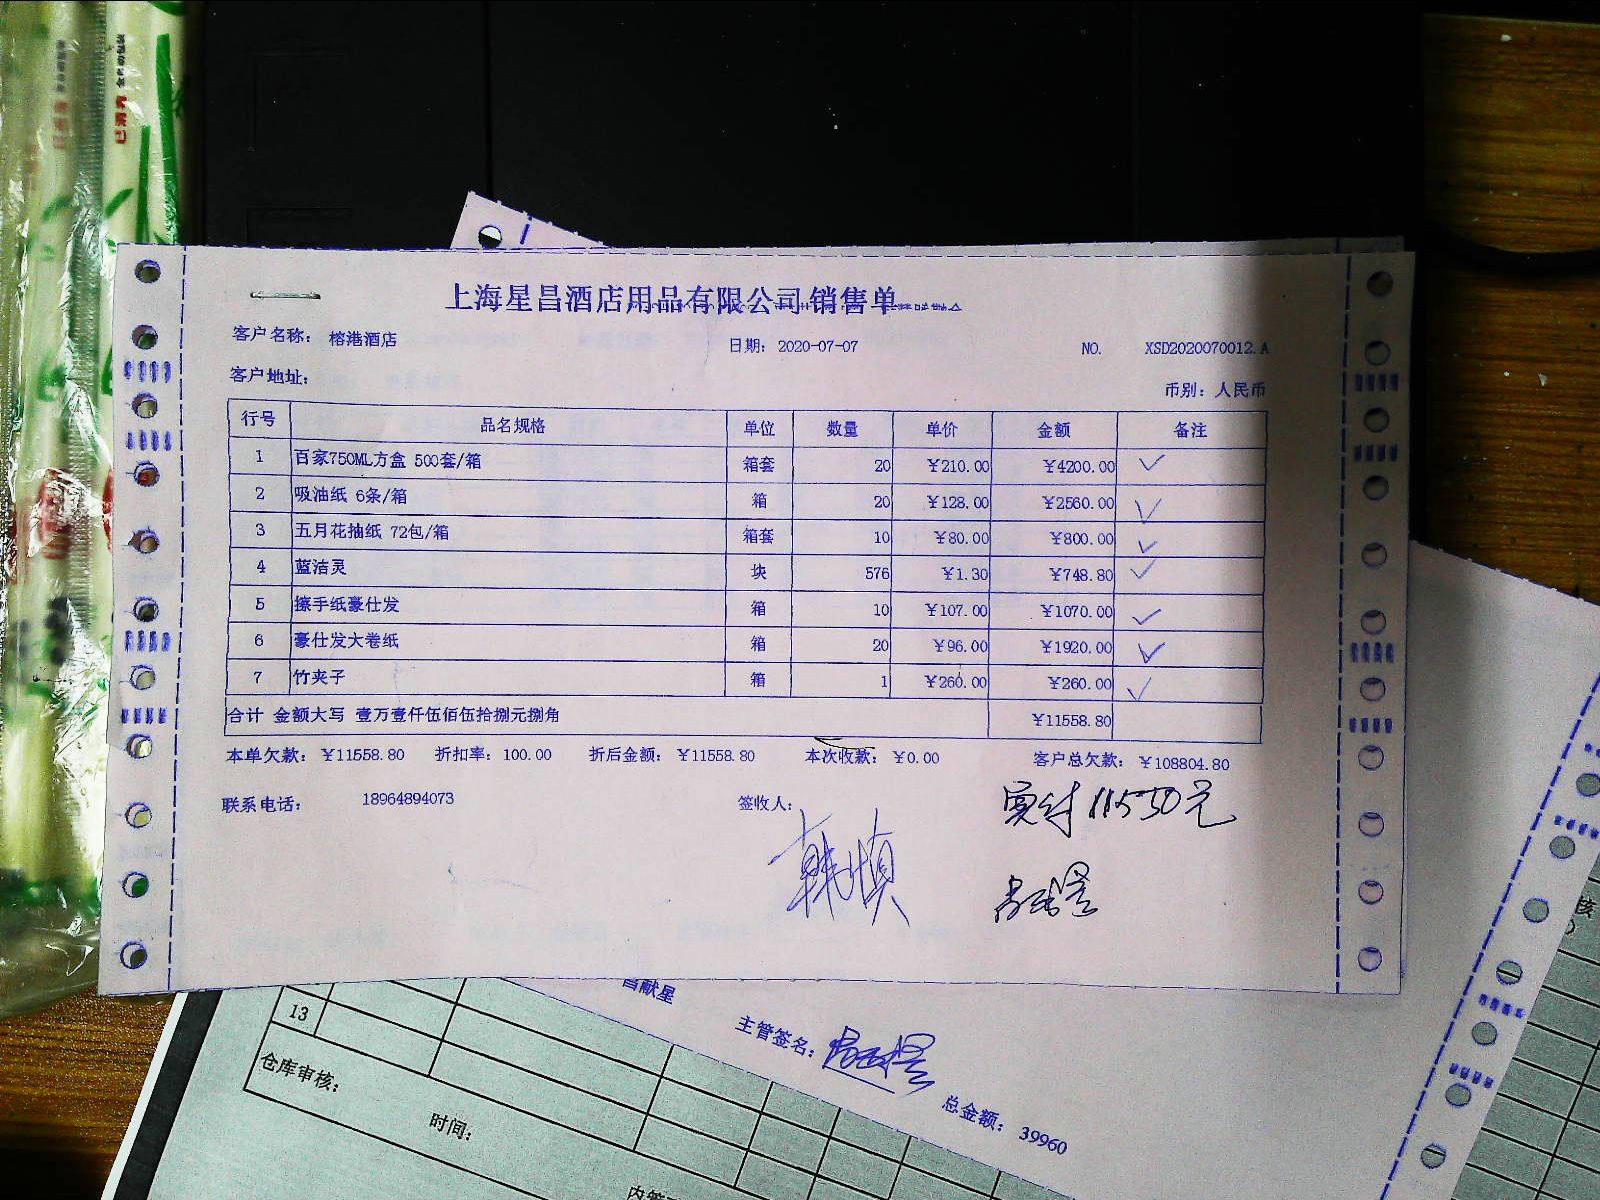 上海星昌酒店用品有限公司销售单
客户名称： 榕港酒店 日期：2020-07-07 NO. XSD2020070012.A
客户地址： 币别：人民币
行号 品名规格 单位 数量 单价 金额 备注
1 百家750ML方盒 500套/箱 箱套 20 ¥210.00 ¥4200.00
2 吸油纸 6条/箱 箱 20 ¥128.00 ¥2560.00
3 五月花抽纸 72包/箱 箱套 10 ¥80.00 ¥800.00
4 蓝洁灵 块 576 ¥1.30 ¥748.80
5 擦手纸豪仕发 箱 10 ¥107.00 ¥1070.00
6 豪仕发大卷纸 箱 20 ¥96.00 ¥1920.00
7 竹夹子 箱 1 ¥260.00 ¥260.00
合计 金额大写 壹万壹仟伍佰伍拾捌元捌角 ¥11558.80
本单欠款： ¥11558.80 折扣率：100.00 折后金额： ¥11558.80 本次收款： ¥0.00 客户总欠款： ¥108804.80
联系电话： 18964894073 签收人：
实付11550元
韩慎
昌献星
主管签名：
总金额： 39960
13
仓库审核：
时间：